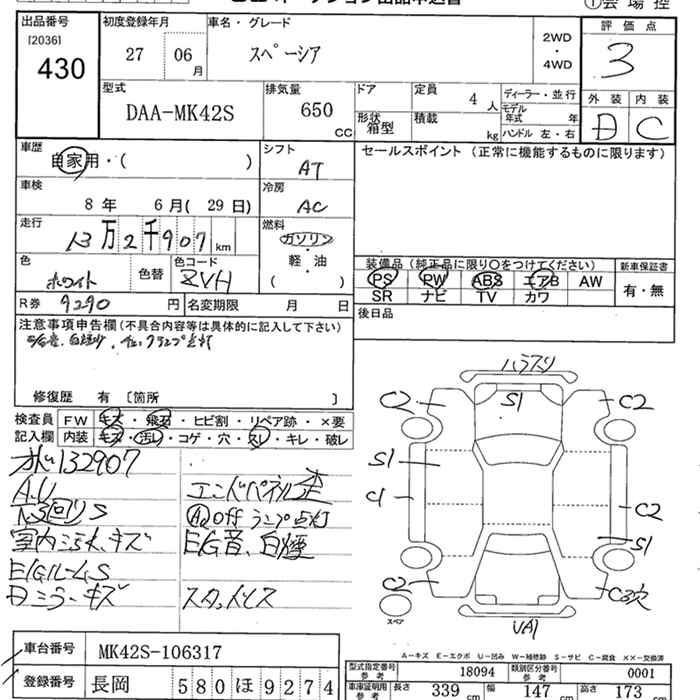 出品番号 初度登録年月 車名・グレード 評価点
[2036] 430 27 06月 スペーシア 2WD・4WD 3
型式 排気量 ドア 定員 4人 ディーラー・並行 外装 内装
DAA-MK42S 650CC 形状 箱型 積載 kg モデル年式 年 ハンドル 左・右 D C
車歴 自家用・( ) シフト AT セールスポイント (正常に機能するものに限ります)
車検 8年 6月(29日) 冷房 AC
走行 13万2千907km 燃料 ガソリン・軽油 ( )
色 ホワイト 色替 色コード ZVH
装備品(純正品に限り○をつけてください) 新車保証書
PS PW ABS エアB AW 有・無
SR ナビ TV カワ
R券 9290円 名変期限 月 日 後日品
注意事項申告欄(不具合内容等は具体的に記入して下さい)
修復歴 有〔箇所 〕
検査員 FW キズ・飛石・ヒビ割・リペア跡・×要
記入欄 内装 キズ・汚レ・コゲ・穴・スレ・キレ・破レ
132907
A.U
室内 キズ
E/Gルーム S
Dミラーキズ
エンドパネル歪
AQ Off ランプ点灯
E/G音、白煙
スタッドレス
S1
C2 C2
S1
C2
S1
C2
スペア
A-キズ E-エクボ U-凹み W-補修跡 S-サビ C-腐食 ××-交換済
車台番号 MK42S-106317
登録番号 長岡 580ほ9274
型式指定番号 参考 18094 類別区分番号 参考 0001
車庫証明用 参考 長さ 339cm 幅 147cm 高さ 173cm